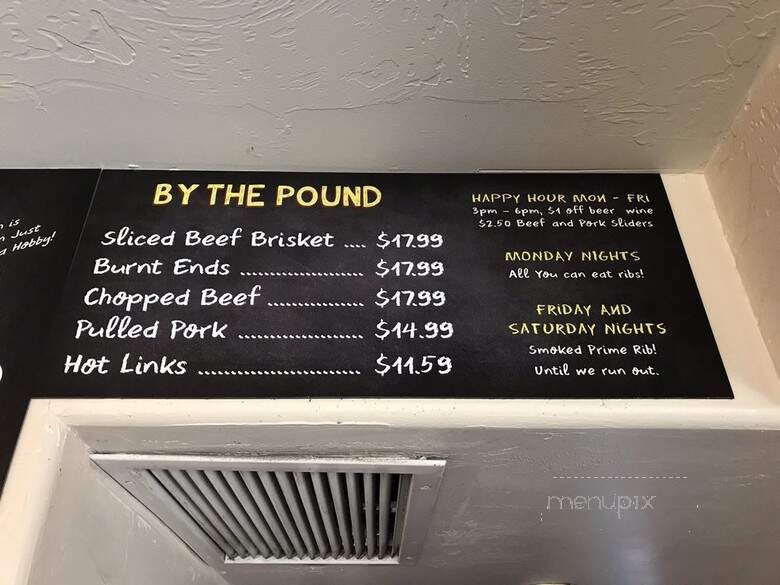 is
Just
a Hobby!
BY THE POUND
Sliced Beef Brisket .... $17.99
Burnt Ends ........................ $17.99
Chopped Beef .................. $17.99
Pulled Pork ....................... $14.99
Hot Links .............................. $11.59
HAPPY HOUR MON - FRI
3pm - 6pm, $1 off beer wine
$2.50 Beef and Pork Sliders
MONDAY NIGHTS
All You can eat ribs!
FRIDAY AND
SATURDAY NIGHTS
Smoked Prime Rib!
Until we run out.
menupix